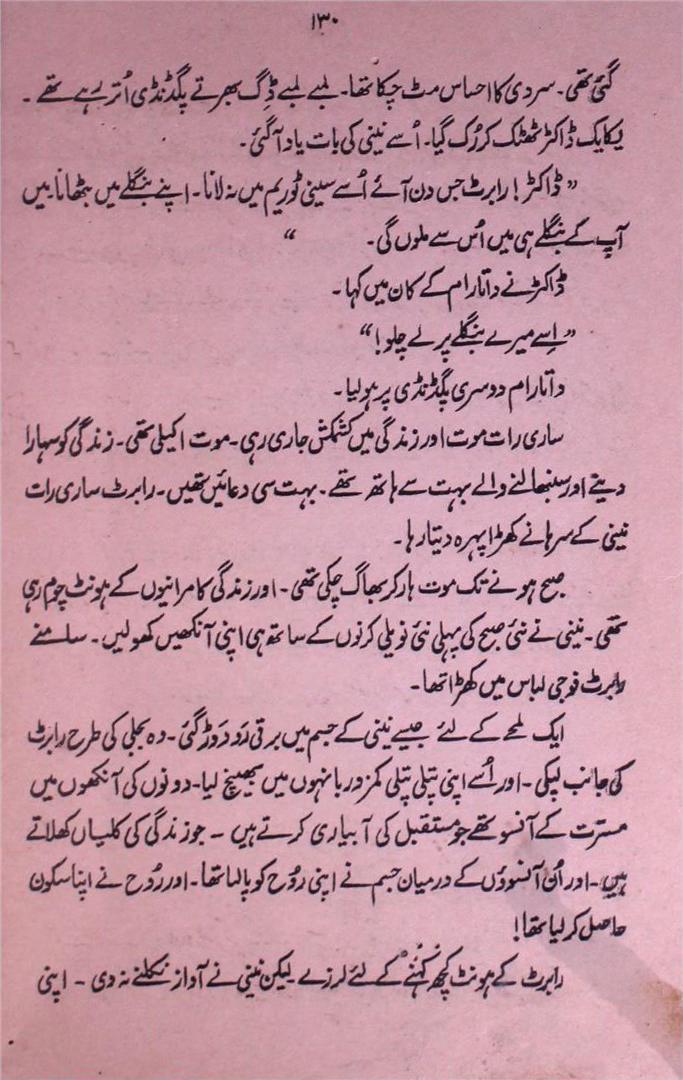 ۱۳۰
گئی تھی۔ سردی کا احساس مٹ چکا تھا۔ لمبے لمبے ڈگ بھرتے پگڈنڈی اُتر رہے تھے۔
یکایک ڈاکٹر ٹھٹک کر رُک گیا۔ اُسے نینی کی بات یاد آ گئی۔
”ڈاکٹر! رابرٹ جس دن آئے اُسے سینی ٹوریم میں نہ لانا۔ اپنے بنگلے میں بٹھانا۔ میں
آپ کے بنگلے ہی میں اُس سے ملوں گی۔“
ڈاکٹر نے داتا رام کے کان میں کہا۔
”اِسے میرے بنگلے پر لے چلو!“
داتا رام دوسری پگڈنڈی پر ہو لیا۔
ساری رات موت اور زندگی میں کشمکش جاری رہی۔ موت اکیلی تھی۔ زندگی کو سہارا
دینے اور سنبھالنے والے بہت سے ہاتھ تھے۔ بہت سی دعائیں تھیں۔ رابرٹ ساری رات
نینی کے سرہانے کھڑا پہرہ دیتا رہا۔
صبح ہونے تک موت ہار کر بھاگ چکی تھی۔ اور زندگی کامرانیوں کے ہونٹ چوم رہی
تھی۔ نینی نے نئی صبح کی پہلی نئی نویلی کرنوں کے ساتھ ہی اپنی آنکھیں کھولیں۔ سامنے
رابرٹ فوجی لباس میں کھڑا تھا۔
ایک لمحے کے لئے جیسے نینی کے جسم میں برقی رَو دَوڑ گئی۔ وہ بجلی کی طرح رابرٹ
کی جانب لپکی۔ اور اُسے اپنی پتلی پتلی کمزور بانہوں میں بھینچ لیا۔ دونوں کی آنکھوں میں
مسرّت کے آنسو تھے جو مستقبل کی آبیاری کرتے ہیں۔ جو زندگی کی کلیاں کھلاتے
ہیں۔ اور اُن آنسوؤں کے درمیان جسم نے اپنی رُوح کو پا لیا تھا۔ اور رُوح نے اپنا سکون
حاصل کر لیا تھا!
رابرٹ کے ہونٹ کچھ کہنے کے لئے لرزے۔ لیکن نینی نے آواز نکلنے نہ دی۔ اپنی